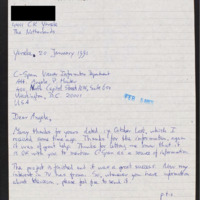 The Netherlands
20 January 1991
C-Span Viewer Information Department
Att. Angela
400, North Capitol Street N.W., Suite 650
Washington, D.C. 20001
USA
Dear Angela,
Many thanks for yours dated October last, which I
received some time ago. Thanks for the information, again
it was of great help. Thanks for letting me know that it
is OK with you to mention C-Span as a source of information.
The project is finished and it was a great success. Now my
interest in TV has grown. So, whenever you have information
about television, please feel free to send it.